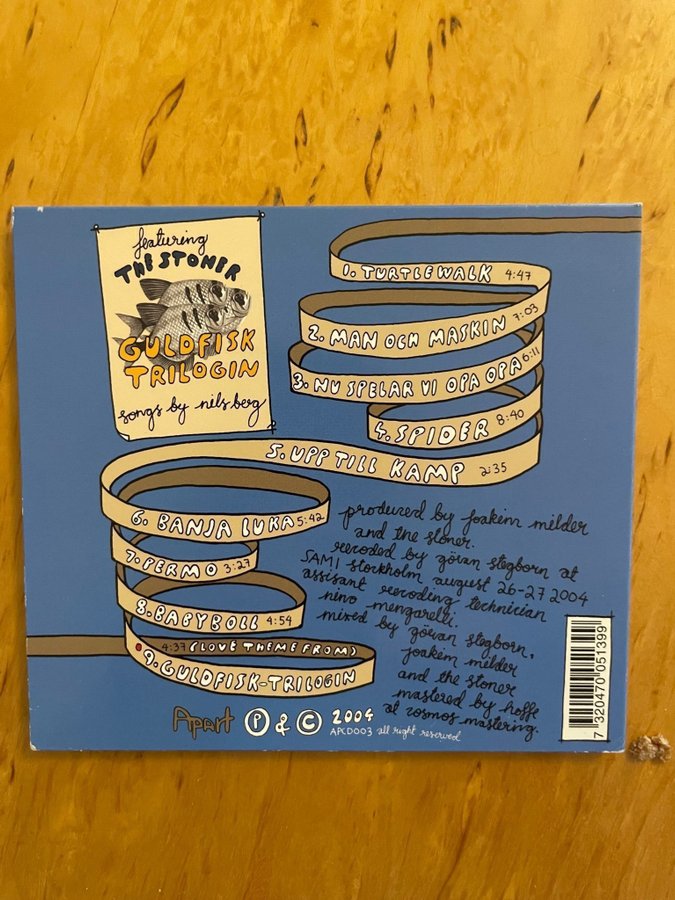 featuring
THE STONER
GULDFISK
TRILOGIN
songs by nils berg
1. TURTLEWALK 4:47
2. MAN OCH MASKIN 7:03
3. NU SPELAR VI OPA OPA 6:11
4. SPIDER 8:40
5. UPP TILL KAMP 2:35
6. BANJA LUKA 5:42
7. PERMO 3:27
8. BABYBOLL 4:54
4:37 (LOVE THEME FROM)
9. GULDFISK-TRILOGIN
produced by joakim milder
and the stoner.
recoded by göran stegborn at
SAMI stockholm august 26-27 2004
assisant recoding technician
nino mengarelli.
mixed by göran stegborn,
joakim milder
and the stoner
mastered by hoffe
at cosmos mastering.
Apart P & C 2004
APCD003 all right reserved
7 320470 051399